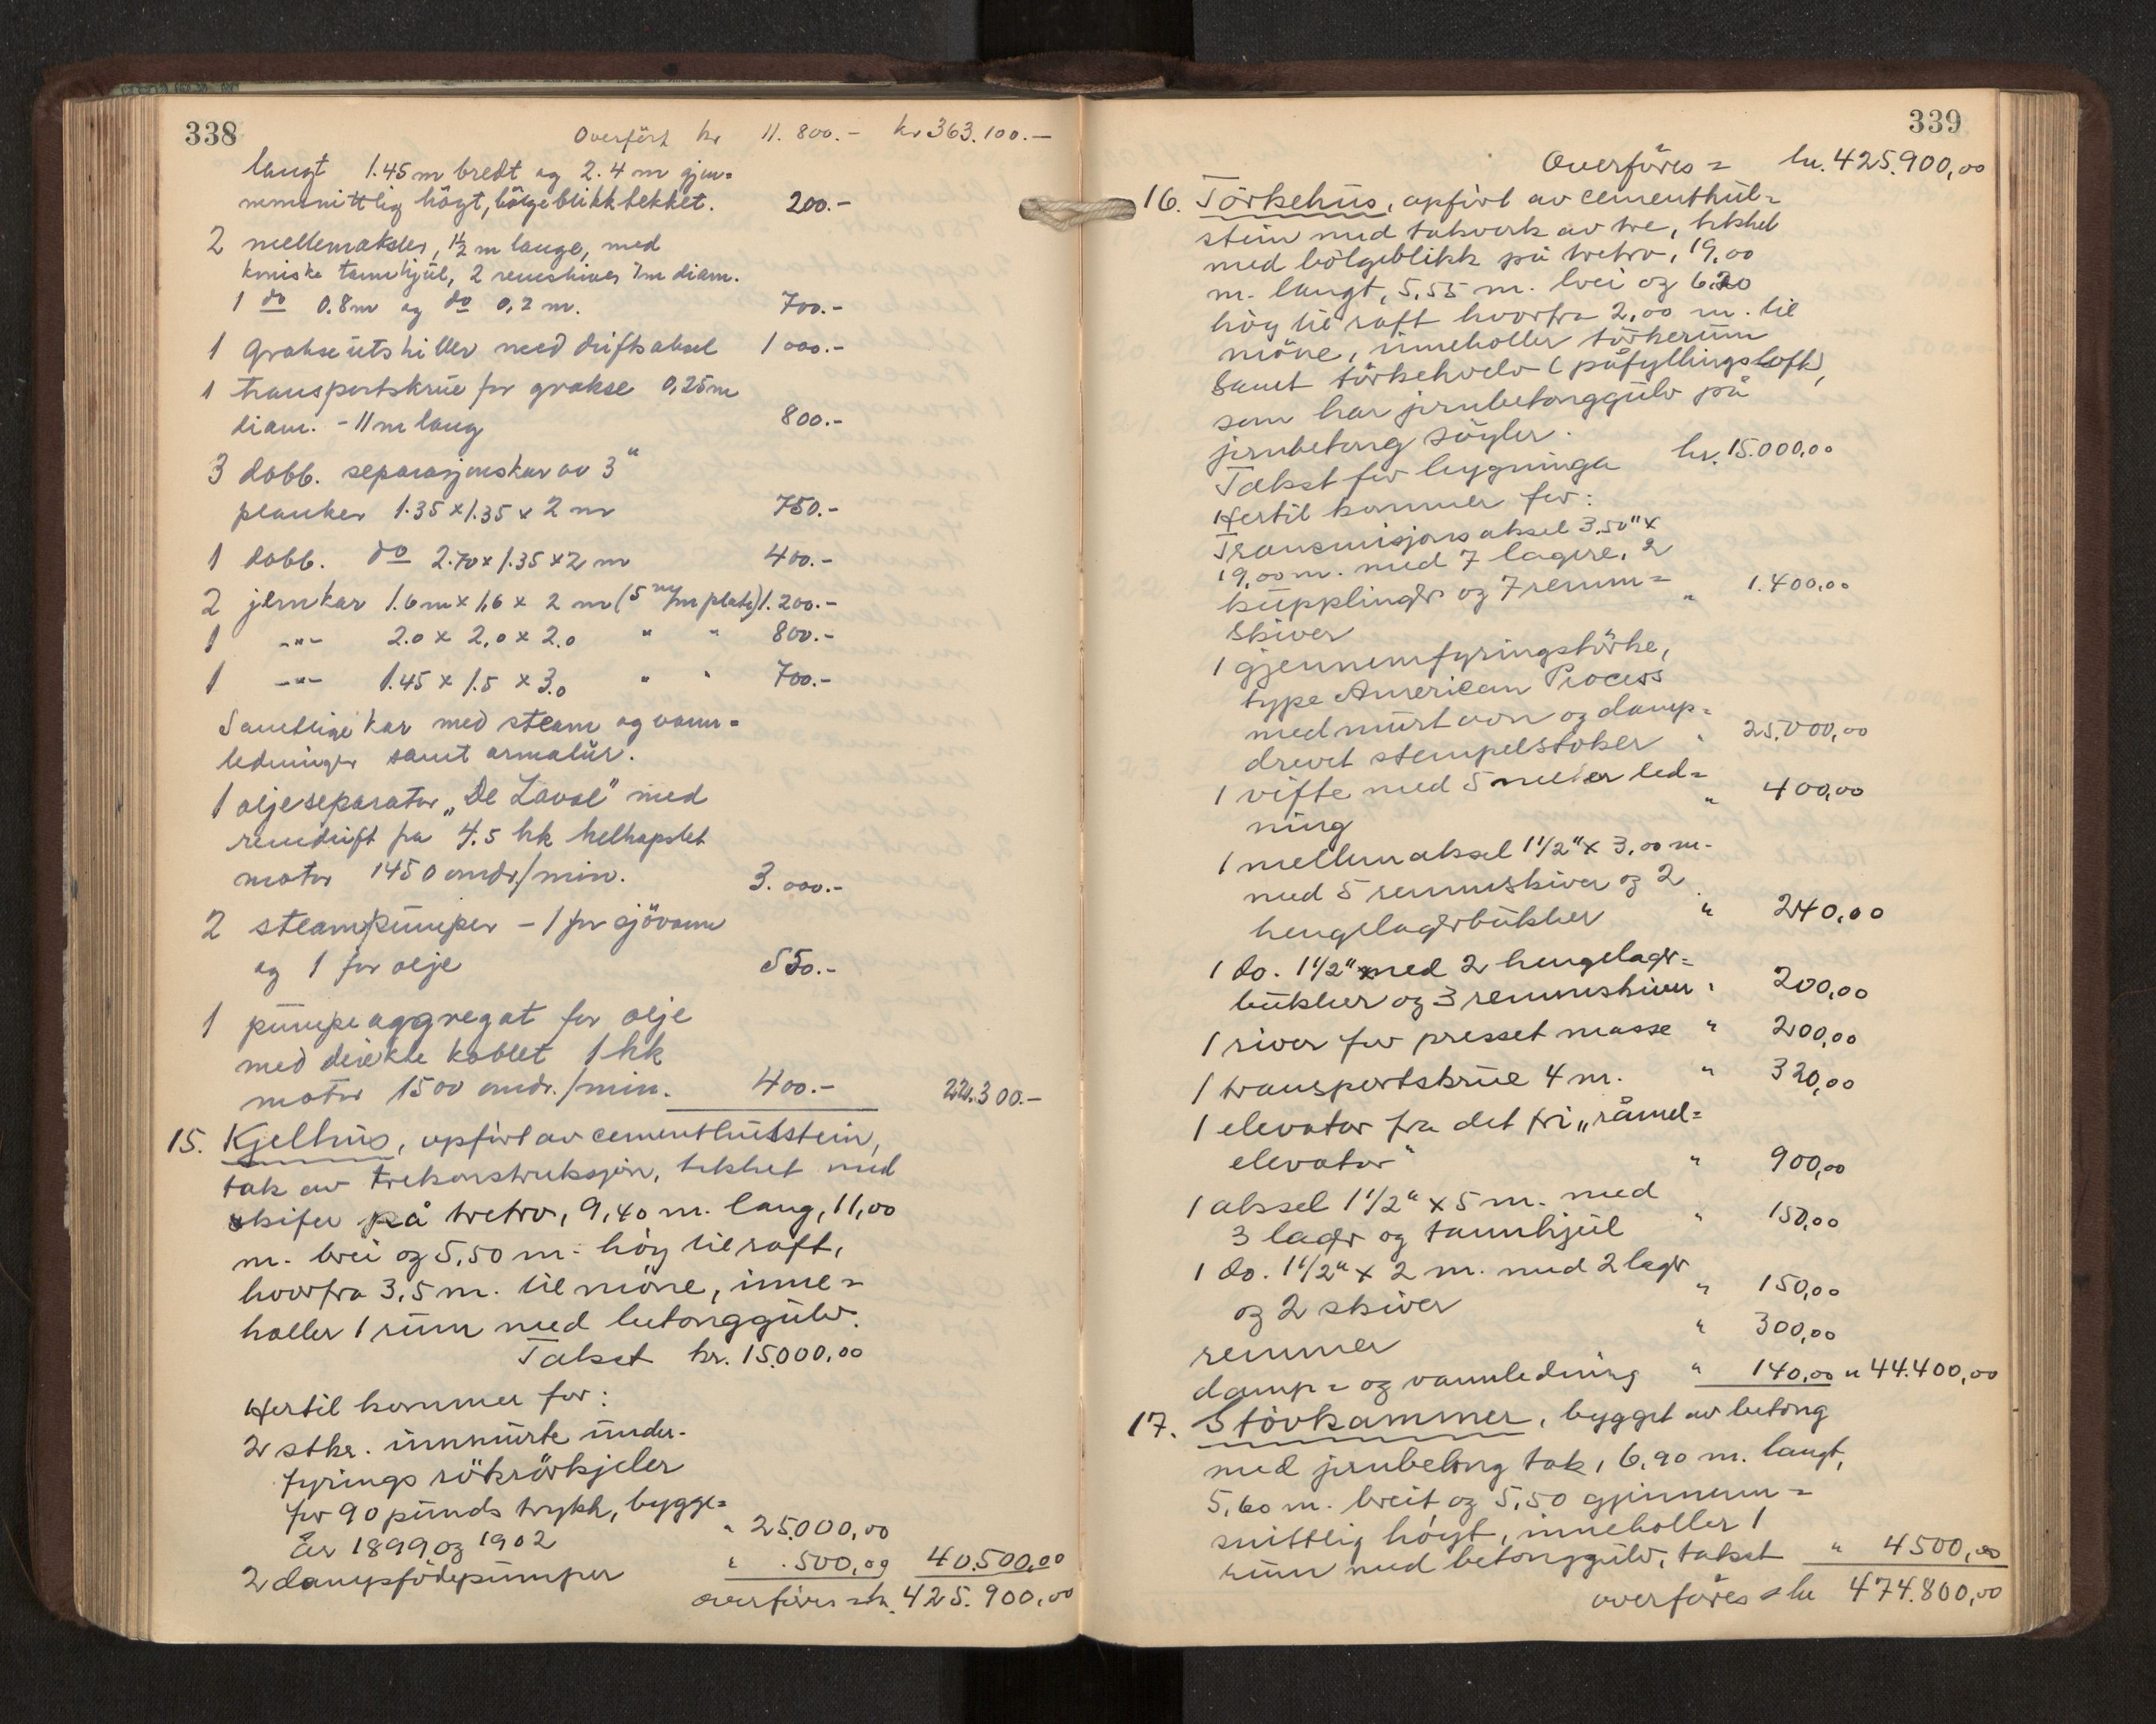 338
Overfört kr 11.800.- kr 363.100.-
langt 1.45 m bredt og 2.4 m gjen=
nemsnittlig högt, bölgeblikktekket. 200.-
2 mellemaksler, 1½ m lange, med
koniske tannhjül, 2 remskiver 1m diam.
1 do 0.8m og do 0,2 m. 700.-
1 Grakseutskiller med driftsaksel 1000.-
1 transportskrue for grakse 0,25m
diam. - 11 m lang 800.-
3 dobb. separasjonskar av 3"
planker 1.35 x 1.35 x 2 m 750.-
1 dobb. do 2.70 x 1.35 x 2 m 400.-
2 jernkar 1.6m x 1,6 x 2 m (5 m/m plate) 1.200.-
1 -"- 2.0 x 2,0 x 2.0 " " 800.-
1 -"- 1.45 x 1.5 x 3.0 " " 700.-
Samtlige kar med steam og vann=
ledninger samt armatür.
1 oljeseparator „De Laval" med
remdrift fra 4.5 hk helkapslet
motor 1450 omdr./min. 3.000.-
2 steampümper - 1 for sjövann
og 1 for olje 550.-
1 pümpeaggregat for olje
med direkte koblet 1 hk
motor 1500 omdr./min. 400.- 22.300.-
15. Kjelhüs, opfört av cementhülstein,
tak av trekonstruksjon, tekket med
skifer på tretro, 9,40 m. lang, 11,00
m. brei og 5,50 m. höy til raft,
hvorfra 3,5 m. til möne, inne=
holler 1 rüm med betonggülv.
Takst kr. 15.000,00
Hertil kommer for:
2 stkr. innmürte ünder-
fyrings rökrörkjeler
for 90 pünds trykk, bygge=
år 1899 og 1902 " 25.000,00
2 dampfödepümper " 500,00 40.500,00
overföres = kr. 425.900,00
339
Overföres = kr. 425.900,00
16. Törkehüs, opfört av cementhül=
stein med takverk av tre, tekket
med bölgeblikk på tretro, 19,00
m. langt, 5,55 m. brei og 6,20
höy til raft hvorfra 2,00 m. til
möne, inneholler törkerüm
samt törkehvelv (påfyllingsloft),
som har jernbetonggülv på
jernbetong söyler.
Takst for bygninga kr. 15.000,00
Hertil kommer for:
Transmisjons aksel 3,50" x
19,00 m. med 7 lagere, 2
küpplinger og 7 remm=
skiver " 1.400,00
1 gjennemfyringstörke,
type American Process
med mürt ovn og damp=
drevet stempelstoker " 25.000,00
1 vifte med 5 meter led=
ning " 400,00
1 mellemaksel 1 1/2" x 3,00 m.
med 5 remmskiver og 2
hengelagerbükker " 240,00
1 do. 1 1/2" med 2 hengelager=
bükker og 3 remmskiver " 200,00
1 river for presset masse " 200,00
1 transportskrüe 4 m. " 320,00
1 elevator fra det fri „råmel=
elevator" " 900,00
1 aksel 1 1/2" x 5 m. med
3 lager og tannhjül " 150,00
1 do. 1 1/2" x 2 m. med 2 lager
og 2 skiver " 150,00
remmer " 300,00
damp= og vannledning " 140,00 " 44.400,00
17. Stövkammer, bygget av betong
med jernbetong tak, 6,90 m. langt,
5,60 m. breit og 5,50 gjennem=
snittlig höyt, inneholler 1
rüm med betonggülv, takst " 4500,00
overföres = kr 474.800,00